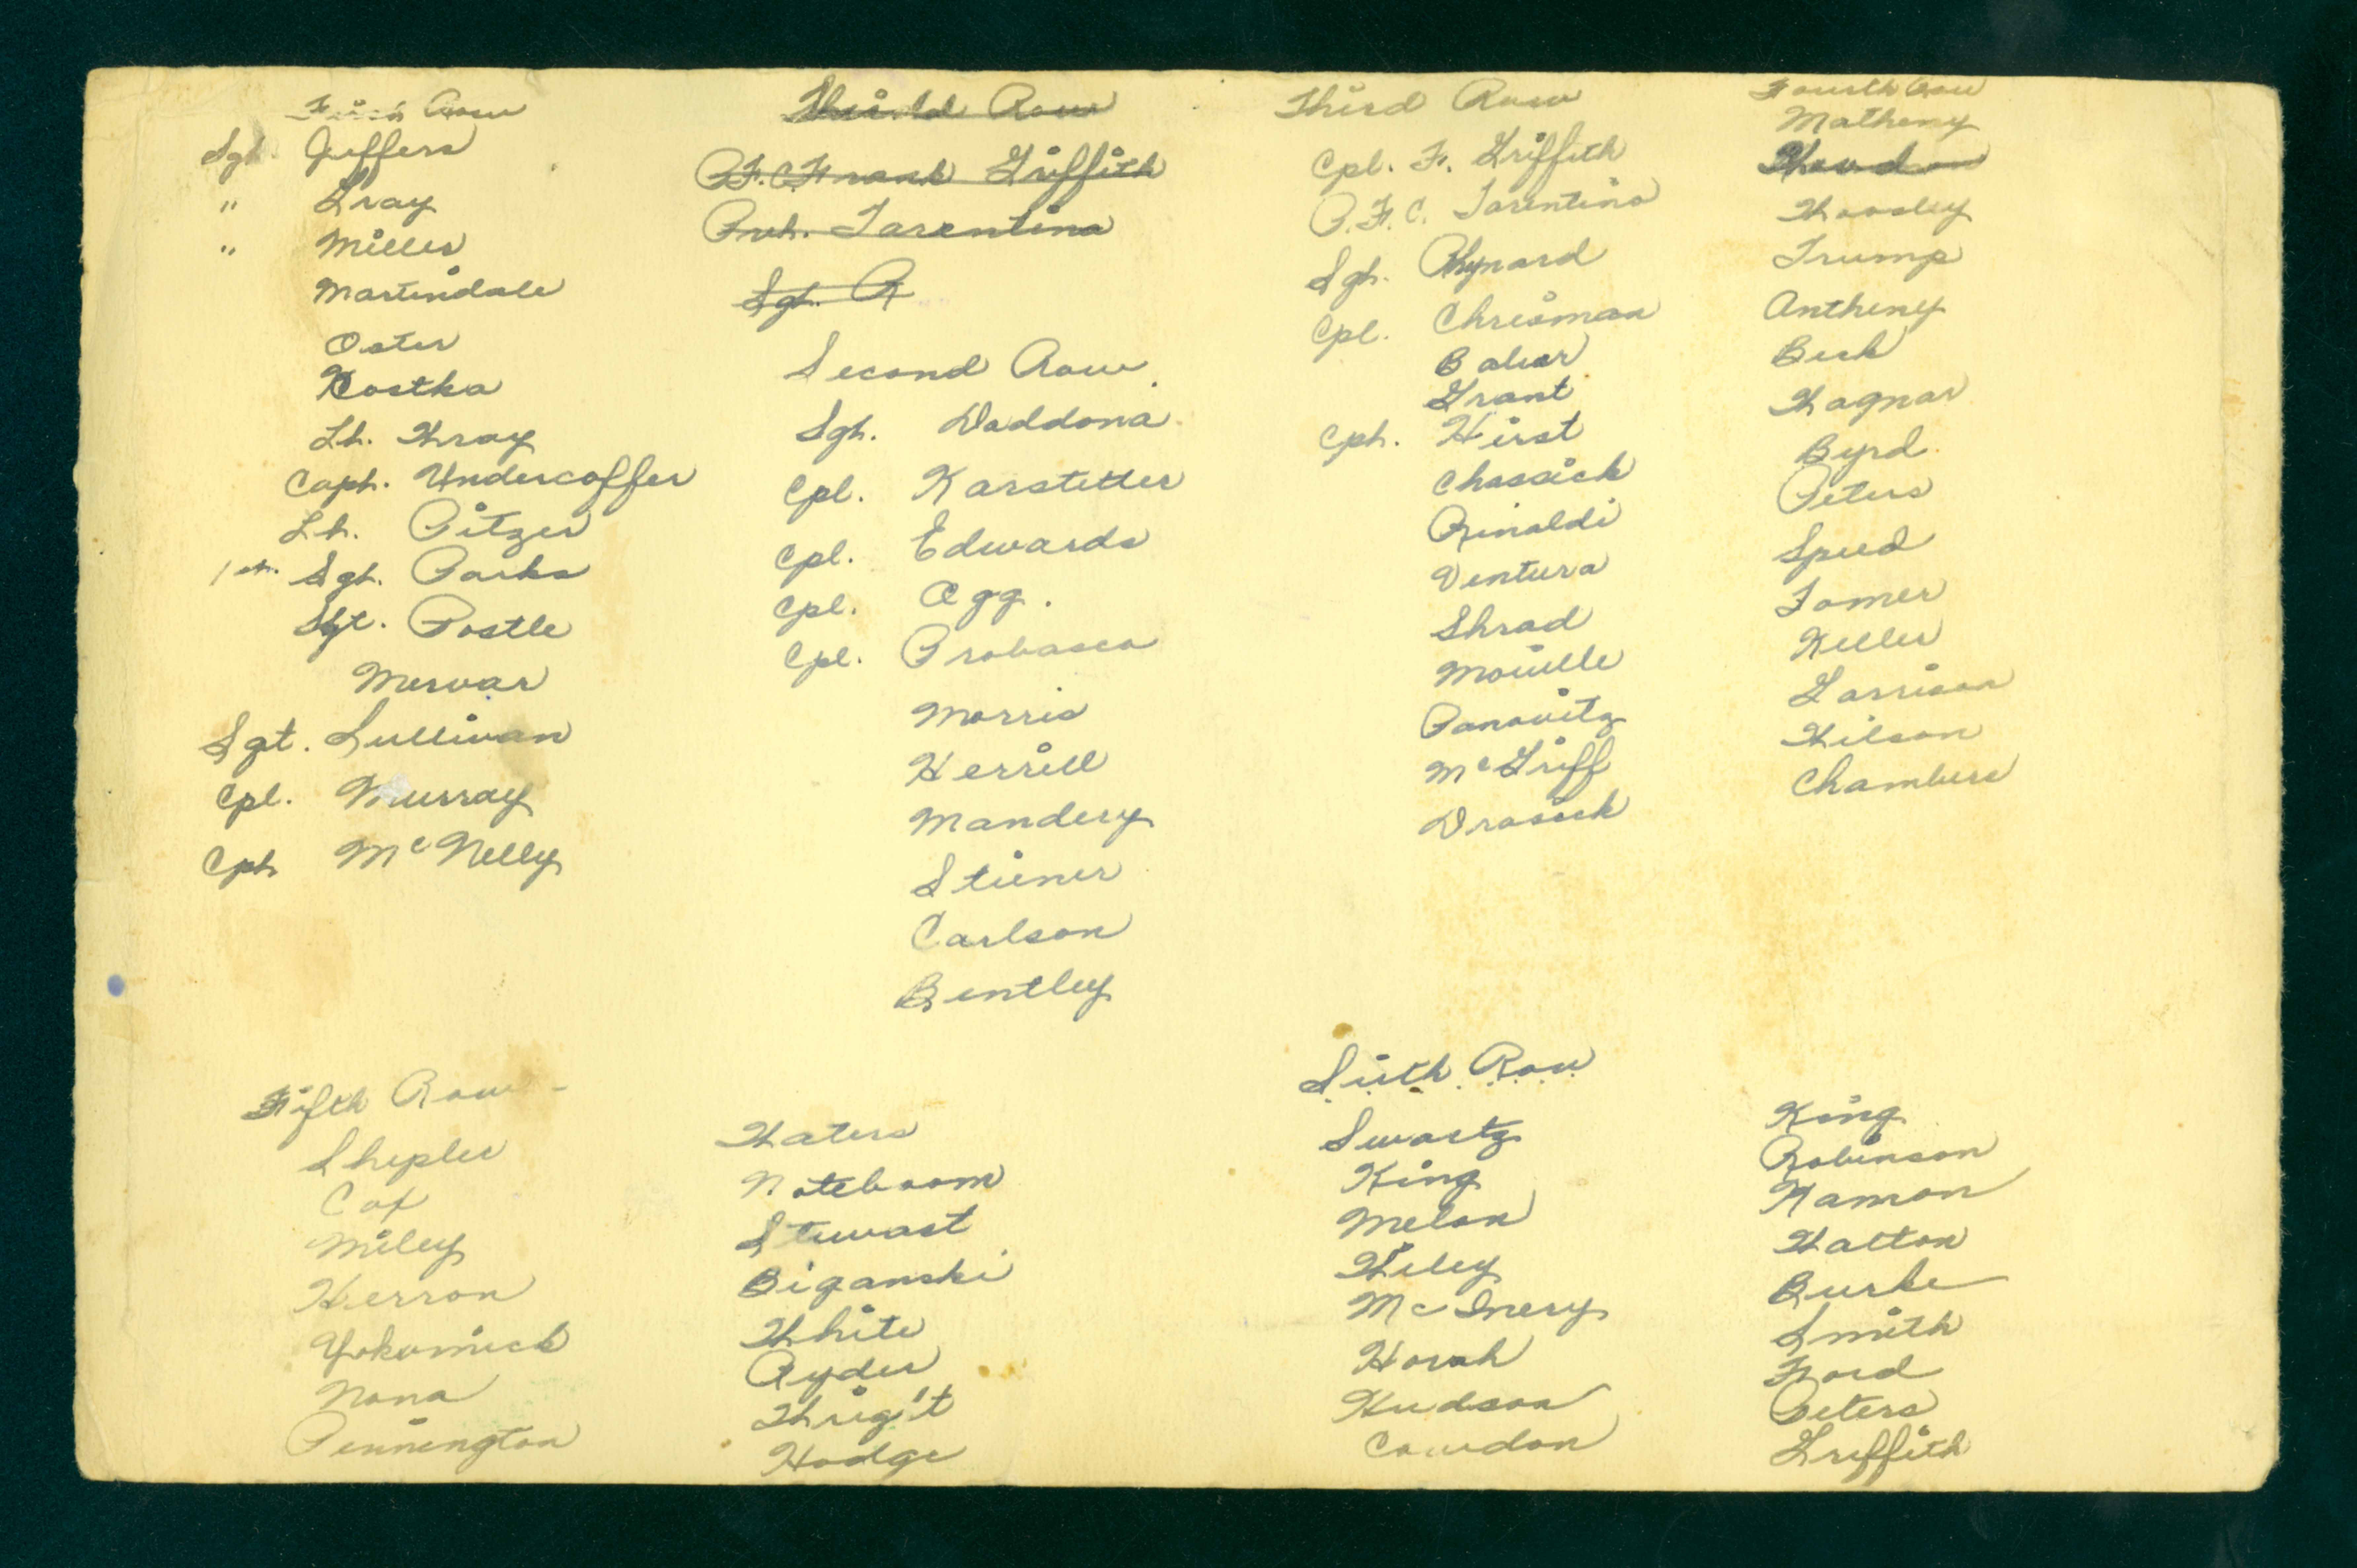 First Row
Sgt. Jeffers
" Gray
" Miller
Martindale
Oster
Kostka
Lt. Wray
Capt. Undercoffer
Lt. Pitzer
1st. Sgt. Parks
Sgt. Postle
Mervar
Sgt. Sullivan
Cpl. Murray
Cpt McNelly
Third Row
P.F.C. Frank Griffith
Pvt. Tarentino
Sgt. R
Second Row
Sgt. Daddona
Cpl. Karstetter
Cpl. Edwards
Cpl. Agg.
Cpl. Probasco
Morris
Herrill
Mandery
Steiner
Carlson
Bentley
Third Row
Cpl. F. Griffith
P.F.C. Tarentino
Sgt. Rhynard
Cpl. Chrisman
Baker
Grant
Cpt. Hirst
Chassick
Rinaldi
Ventura
Shrad
Panovitz
McGriff
Drasick
Fourth Row
Matheny
Woosley
Trump
Antheny
Beck
Wagnar
Byrd
Peters
Speed
Tomer
Keller
Garrison
Wilson
Chambers
Fifth Row -
Shepler
Cox
Miley
Herron
Nona
Pennington
Waters
Noteboom
Stewart
Biganski
White
Ryder
Wrig't
Hodge
Sixth Row
Swartz
King
Melon
Wiley
McInery
Horah
Hudson
Cowdon
King
Robinson
Hamon
Watton
Burke
Smith
Ford
Peters
Griffith